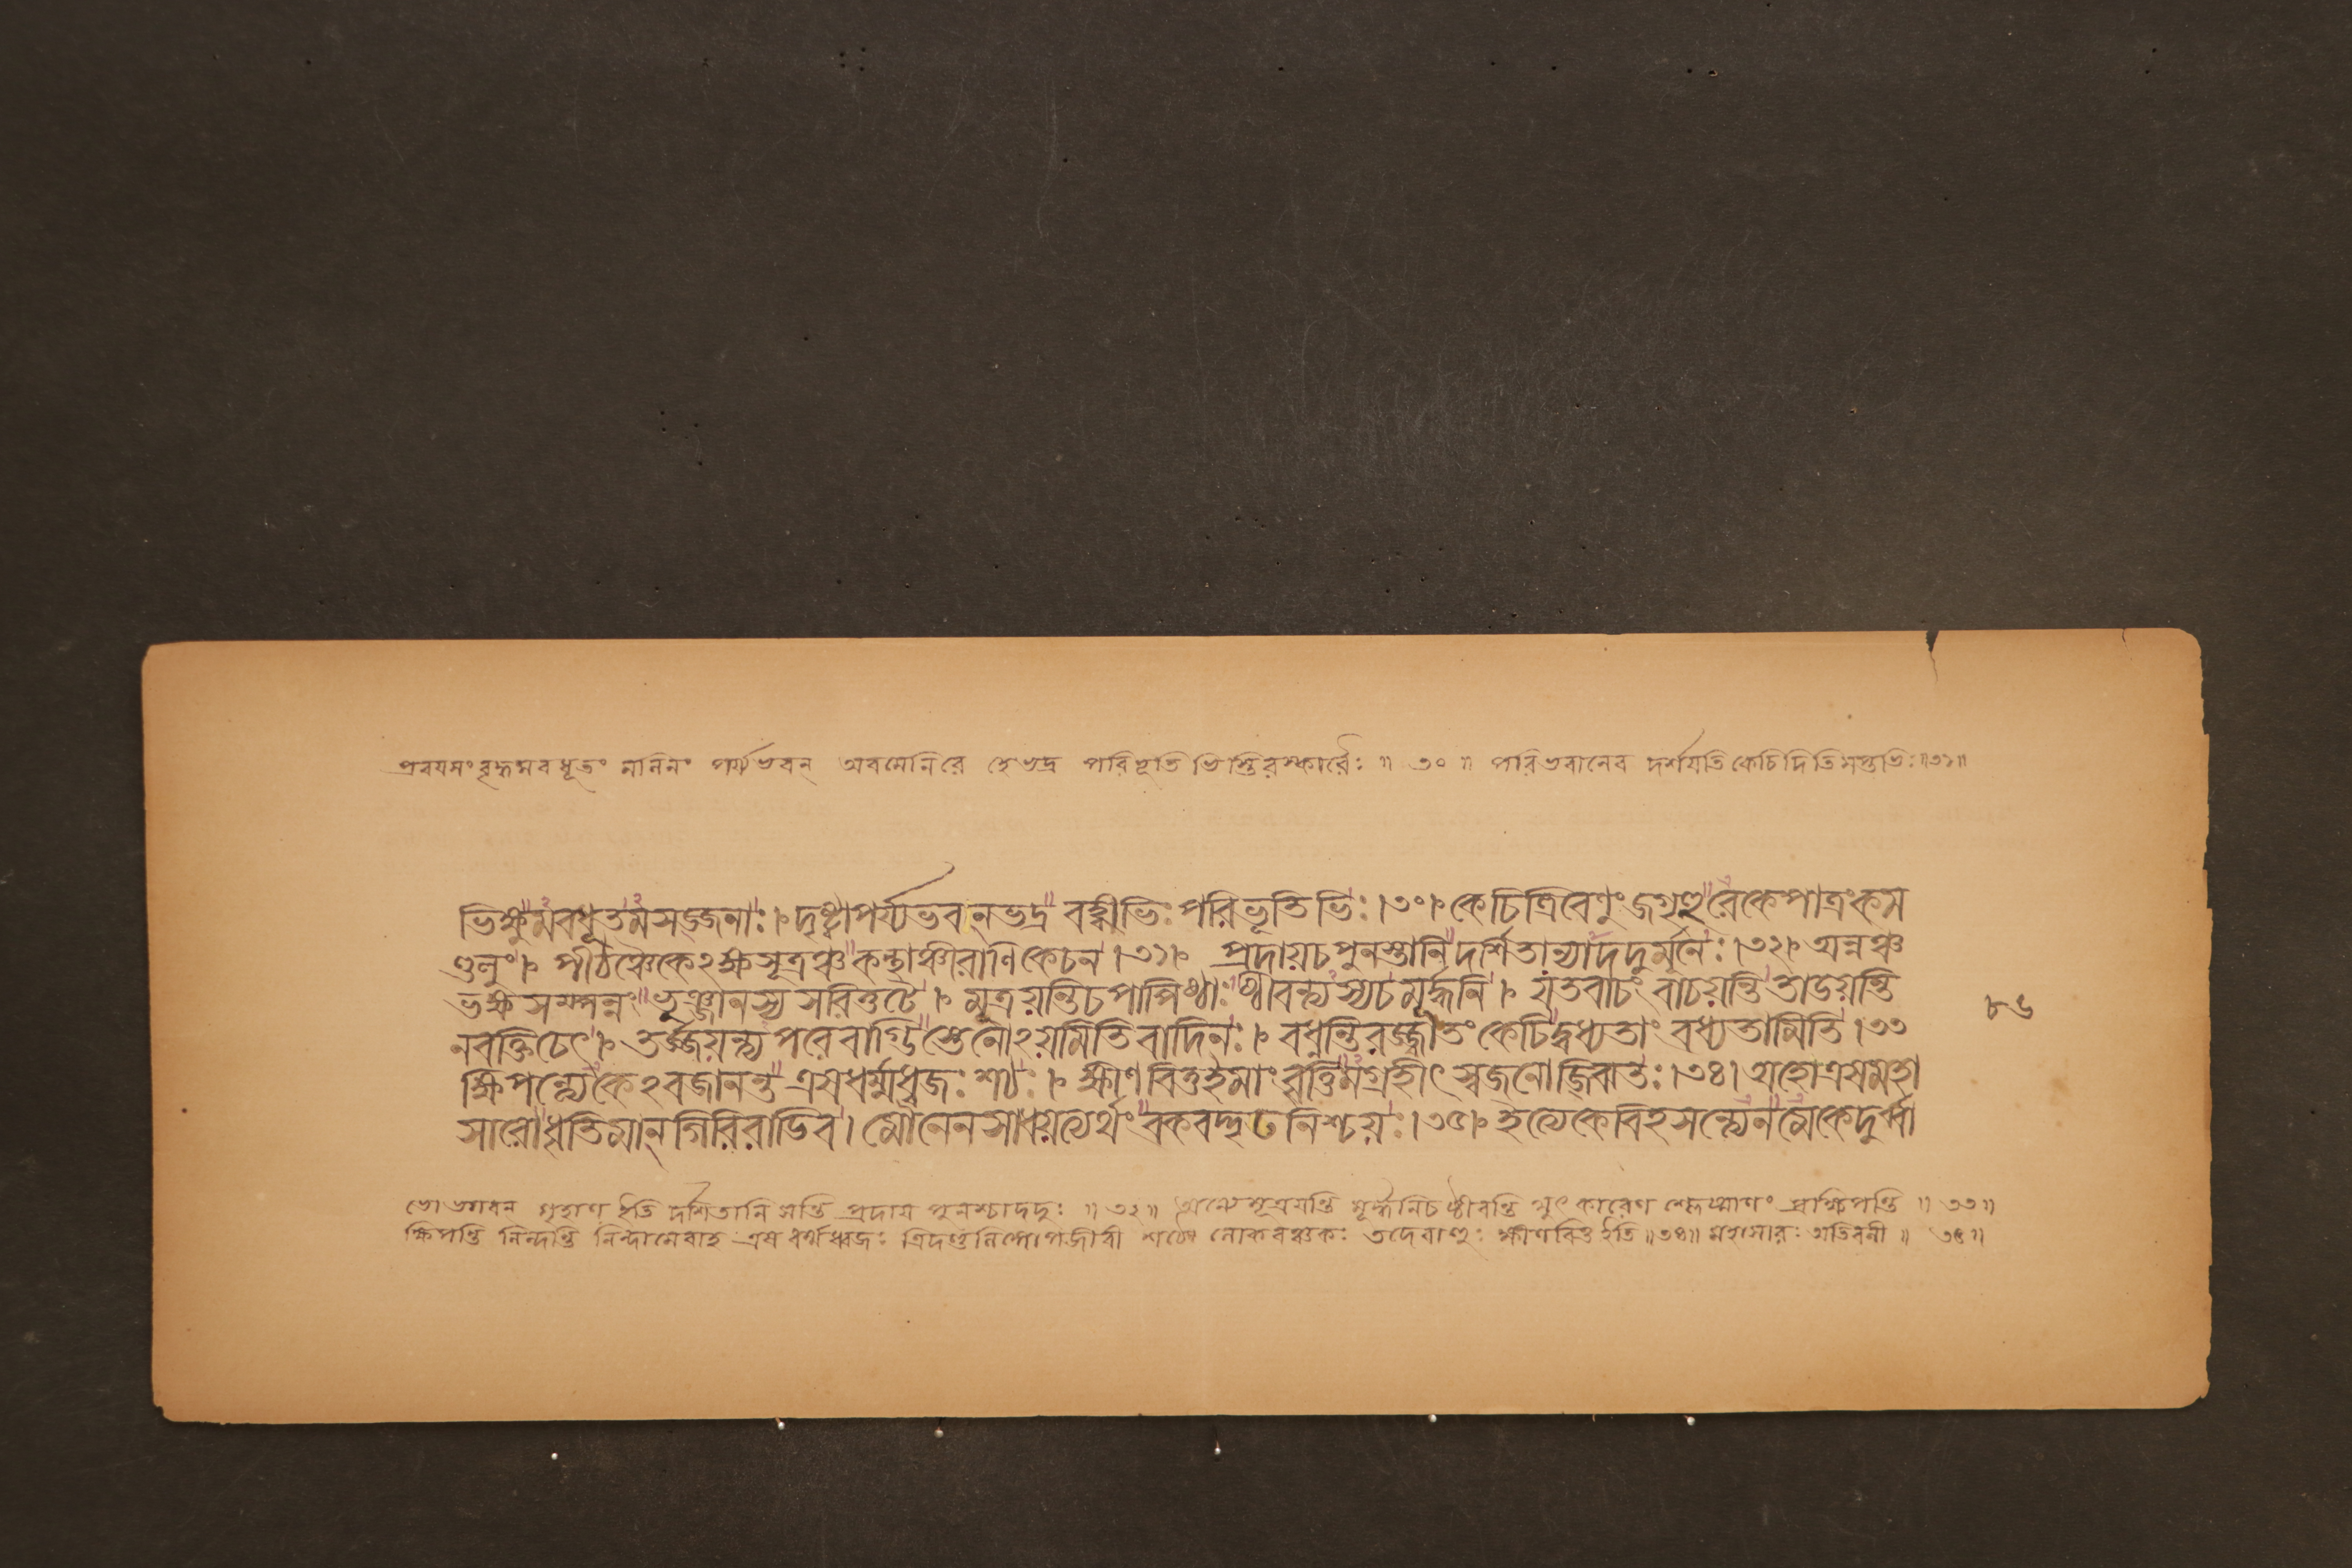 প্রবয়সং বৃদ্ধমবধূতং মলিনং পর্য্যভবন্ অবমেনিরে হেভদ্র পরিভূতিভিস্তিরস্কারৈঃ ॥ ৩০ ॥ পরিভবানেব দর্শযতি কেচিদিতি সপ্তভিঃ ॥৩১॥
ভিক্ষুমবধূতমসজ্জনাঃ।দৃষ্ট্বাপর্য্যভবন্ভদ্র বহ্বীভিঃ পরিভূতিভিঃ।৩০। কেচিত্রিবেণুং জগৃহুরেকেপাত্রংকম
ণ্ডলুং। পীঠঞ্চৈকেঽক্ষসূত্রঞ্চ কন্থাঞ্চীরাণিকেচন।৩১। প্রদায়চপুনস্তানি দর্শিতান্যাদদুর্মুনেঃ।৩২। অন্নঞ্চ
ভক্ষসম্পন্নং ভুঞ্জানস্য সরিত্তটে। মূত্রয়ন্তিচপাপিষ্ঠাঃ ষ্ঠীবন্ত্যস্যচমূর্দ্ধনি। যতবাচং বাচয়ন্তি তাডয়ন্তি
নবক্তিচেৎ। তর্জ্জয়ন্ত্যপরেবাগ্ভিস্তেনোঽয়মিতিবাদিনঃ। বধ্নন্তিরজ্জ্বাতং কেচিদ্বধ্যতাং বধ্যতামিতি।৩৩
ক্ষিপন্ত্যেকেঽবজানন্ত এষধর্ম্মধ্বজঃ শঠঃ। ক্ষীণবিত্তইমাং বৃত্তিমগ্রহীৎ স্বজনোজ্ঝিতঃ।৩৪। অহোএষমহা
সারোধৃতিমান্ গিরিরাডিব। মৌনেনসাধয়ত্যর্থং বকবদ্দৃঢনিশ্চয়ঃ।৩৫। ইত্যেকেবিহসন্ত্যেনমেকেদুর্ব্বা
৮৬
ভো ভগবন্ গৃহাণ ইতি দর্শিতানি সন্তি প্রদায় পুনশ্চাদদুঃ ॥ ৩২ ॥ মূত্রয়ন্তি মূর্দ্ধনিচ ষ্ঠীবন্তি থুৎকারেণ শ্লেষ্মাণং প্রক্ষিপন্তি ॥ ৩৩ ॥
ক্ষিপন্তি নিন্দন্তি নিন্দামেবাহ এষ ধর্ম্মধ্বজঃ শঠো লোকবঞ্চকঃ তদেবাহুঃ ক্ষীণবিত্ত ইতি ॥৩৪॥ মহাসারঃ অতিবলী ॥ ৩৫ ॥